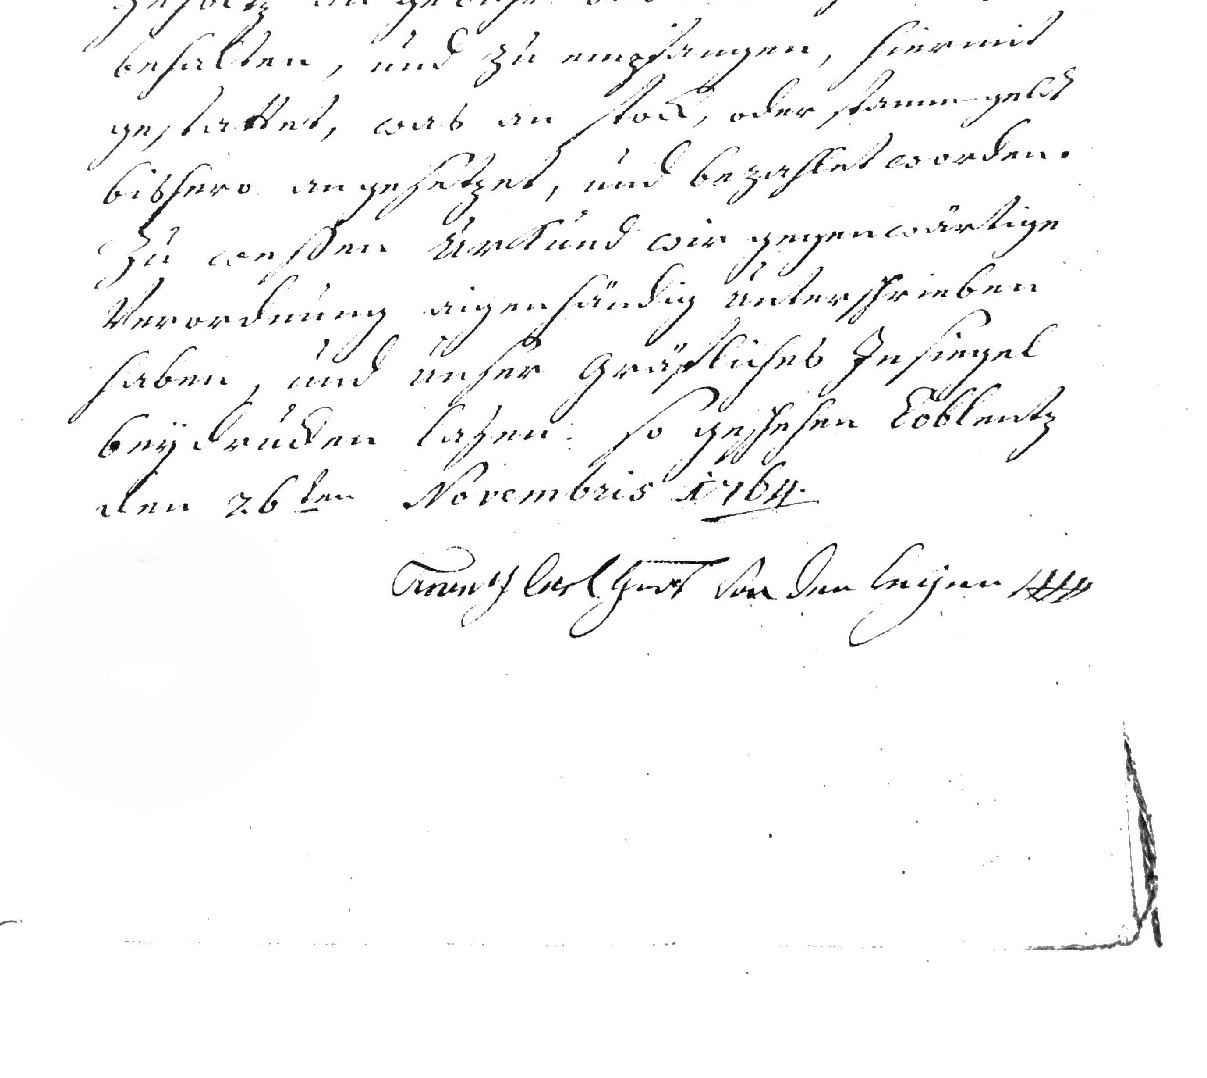 behalten, und zu empfangen, hiermit
gestattet, was an stock, oder stamm-geldt
bishero angesetzet, und bezahlet worden.
Zu wessen Urkund wir gegenwärtige
Verordnung aigenhändig unterschrieben
haben, und unser Gräfliches Insiegel
beydrucken lasen. so geschehen Coblentz
den 26ten Novembris 1764.
Frantz Carl Graf von der Leyen